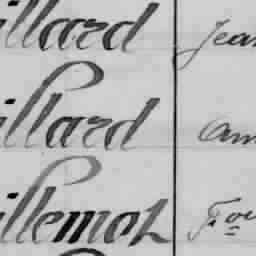 illard Jean
illard Am
illemot Fçou